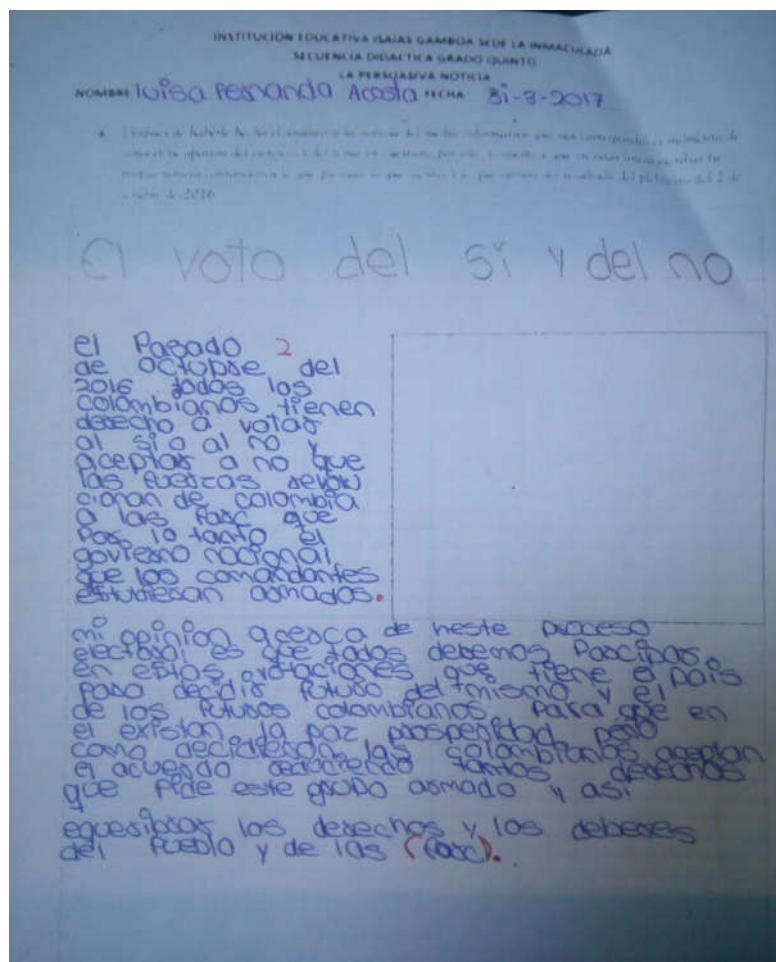 INSTITUCIÓN EDUCATIVA ISAIAS GAMBOA SEDE LA INMACULADA
SECUENCIA DIDACTICA GRADO QUINTO
LA PERSUASIVA NOTICIA
NOMBRE luisa Fernanda Acosta FECHA 31-3-2017
de 2016
El voto del si y del no
el Pasado 2
de octubre del
2016 todos los
colombianos tienen
derecho a votar
al si o al no y
aceptar a no que
las fuercas revolu
cionan de colombia
a las farc que
por lo tanto el
govierno nacional
que los comandantes
estubieran armados.
mi opinion acerca de neste proceso
electoral es que todos debemos Parcipar
en estas votaciones que tiene el país
para decidir futuro del mismo y el
de los futuros colombianos para que en
el existan la paz prosperidad pero
como decidieron las colombianos aceptan
el acuerdo reduciendo tantos derechos
que pide este grupo armado y así
equesibrar los derechos y los deberes
del Pueblo y de las (farc).